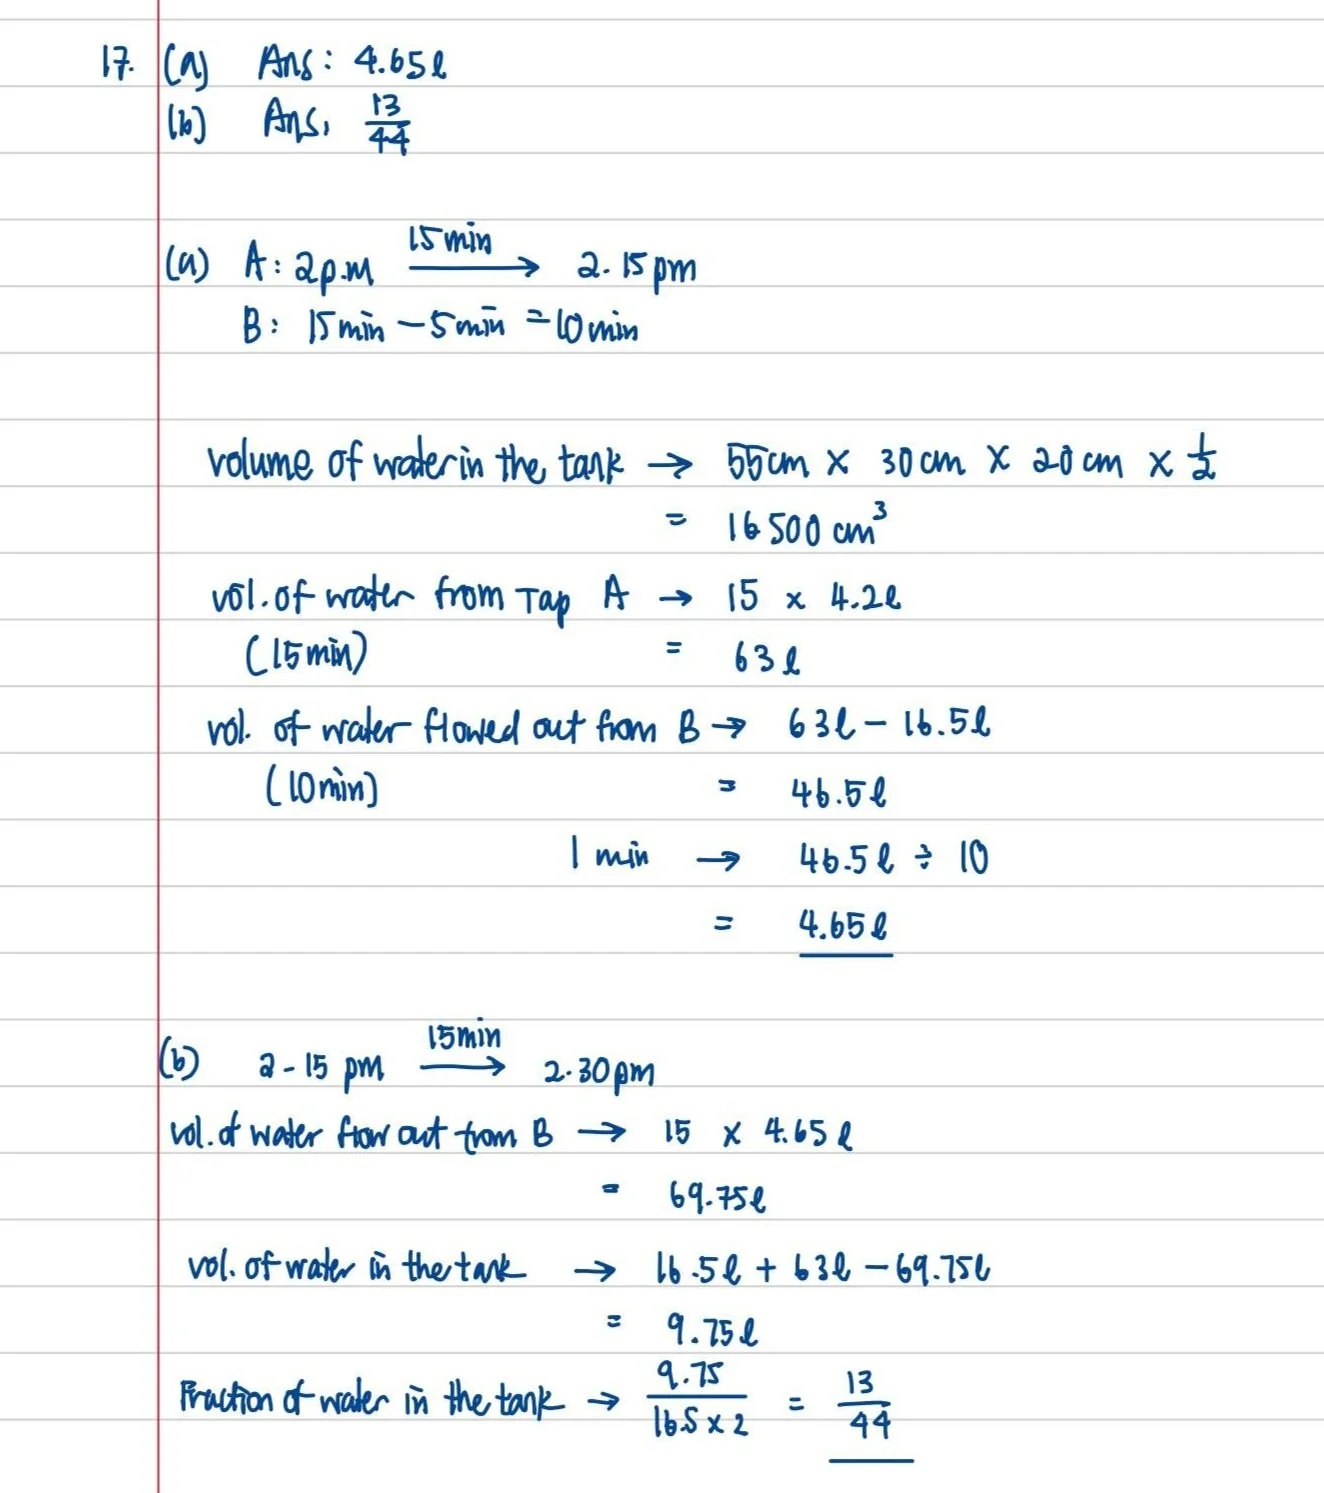 17. (a) Ans: 4.65l
(b) Ans, 13/44
(a) A: 2p.m 15min → 2.15pm
B: 15min - 5min = 10min
volume of water in the tank → 55cm × 30cm × 20cm × 1/2
= 16500 cm³
vol. of water from Tap A → 15 × 4.2l
(15min) = 63l
vol. of water flowed out from B → 63l - 16.5l
(10min) = 46.5l
1 min → 46.5l ÷ 10
= 4.65l
(b) 2-15 pm 15min → 2.30pm
vol. of water flow out from B → 15 × 4.65l
= 69.75l
vol. of water in the tank → 16.5l + 63l - 69.75l
= 9.75l
Fraction of water in the tank → 9.75/16.5×2 = 13/44